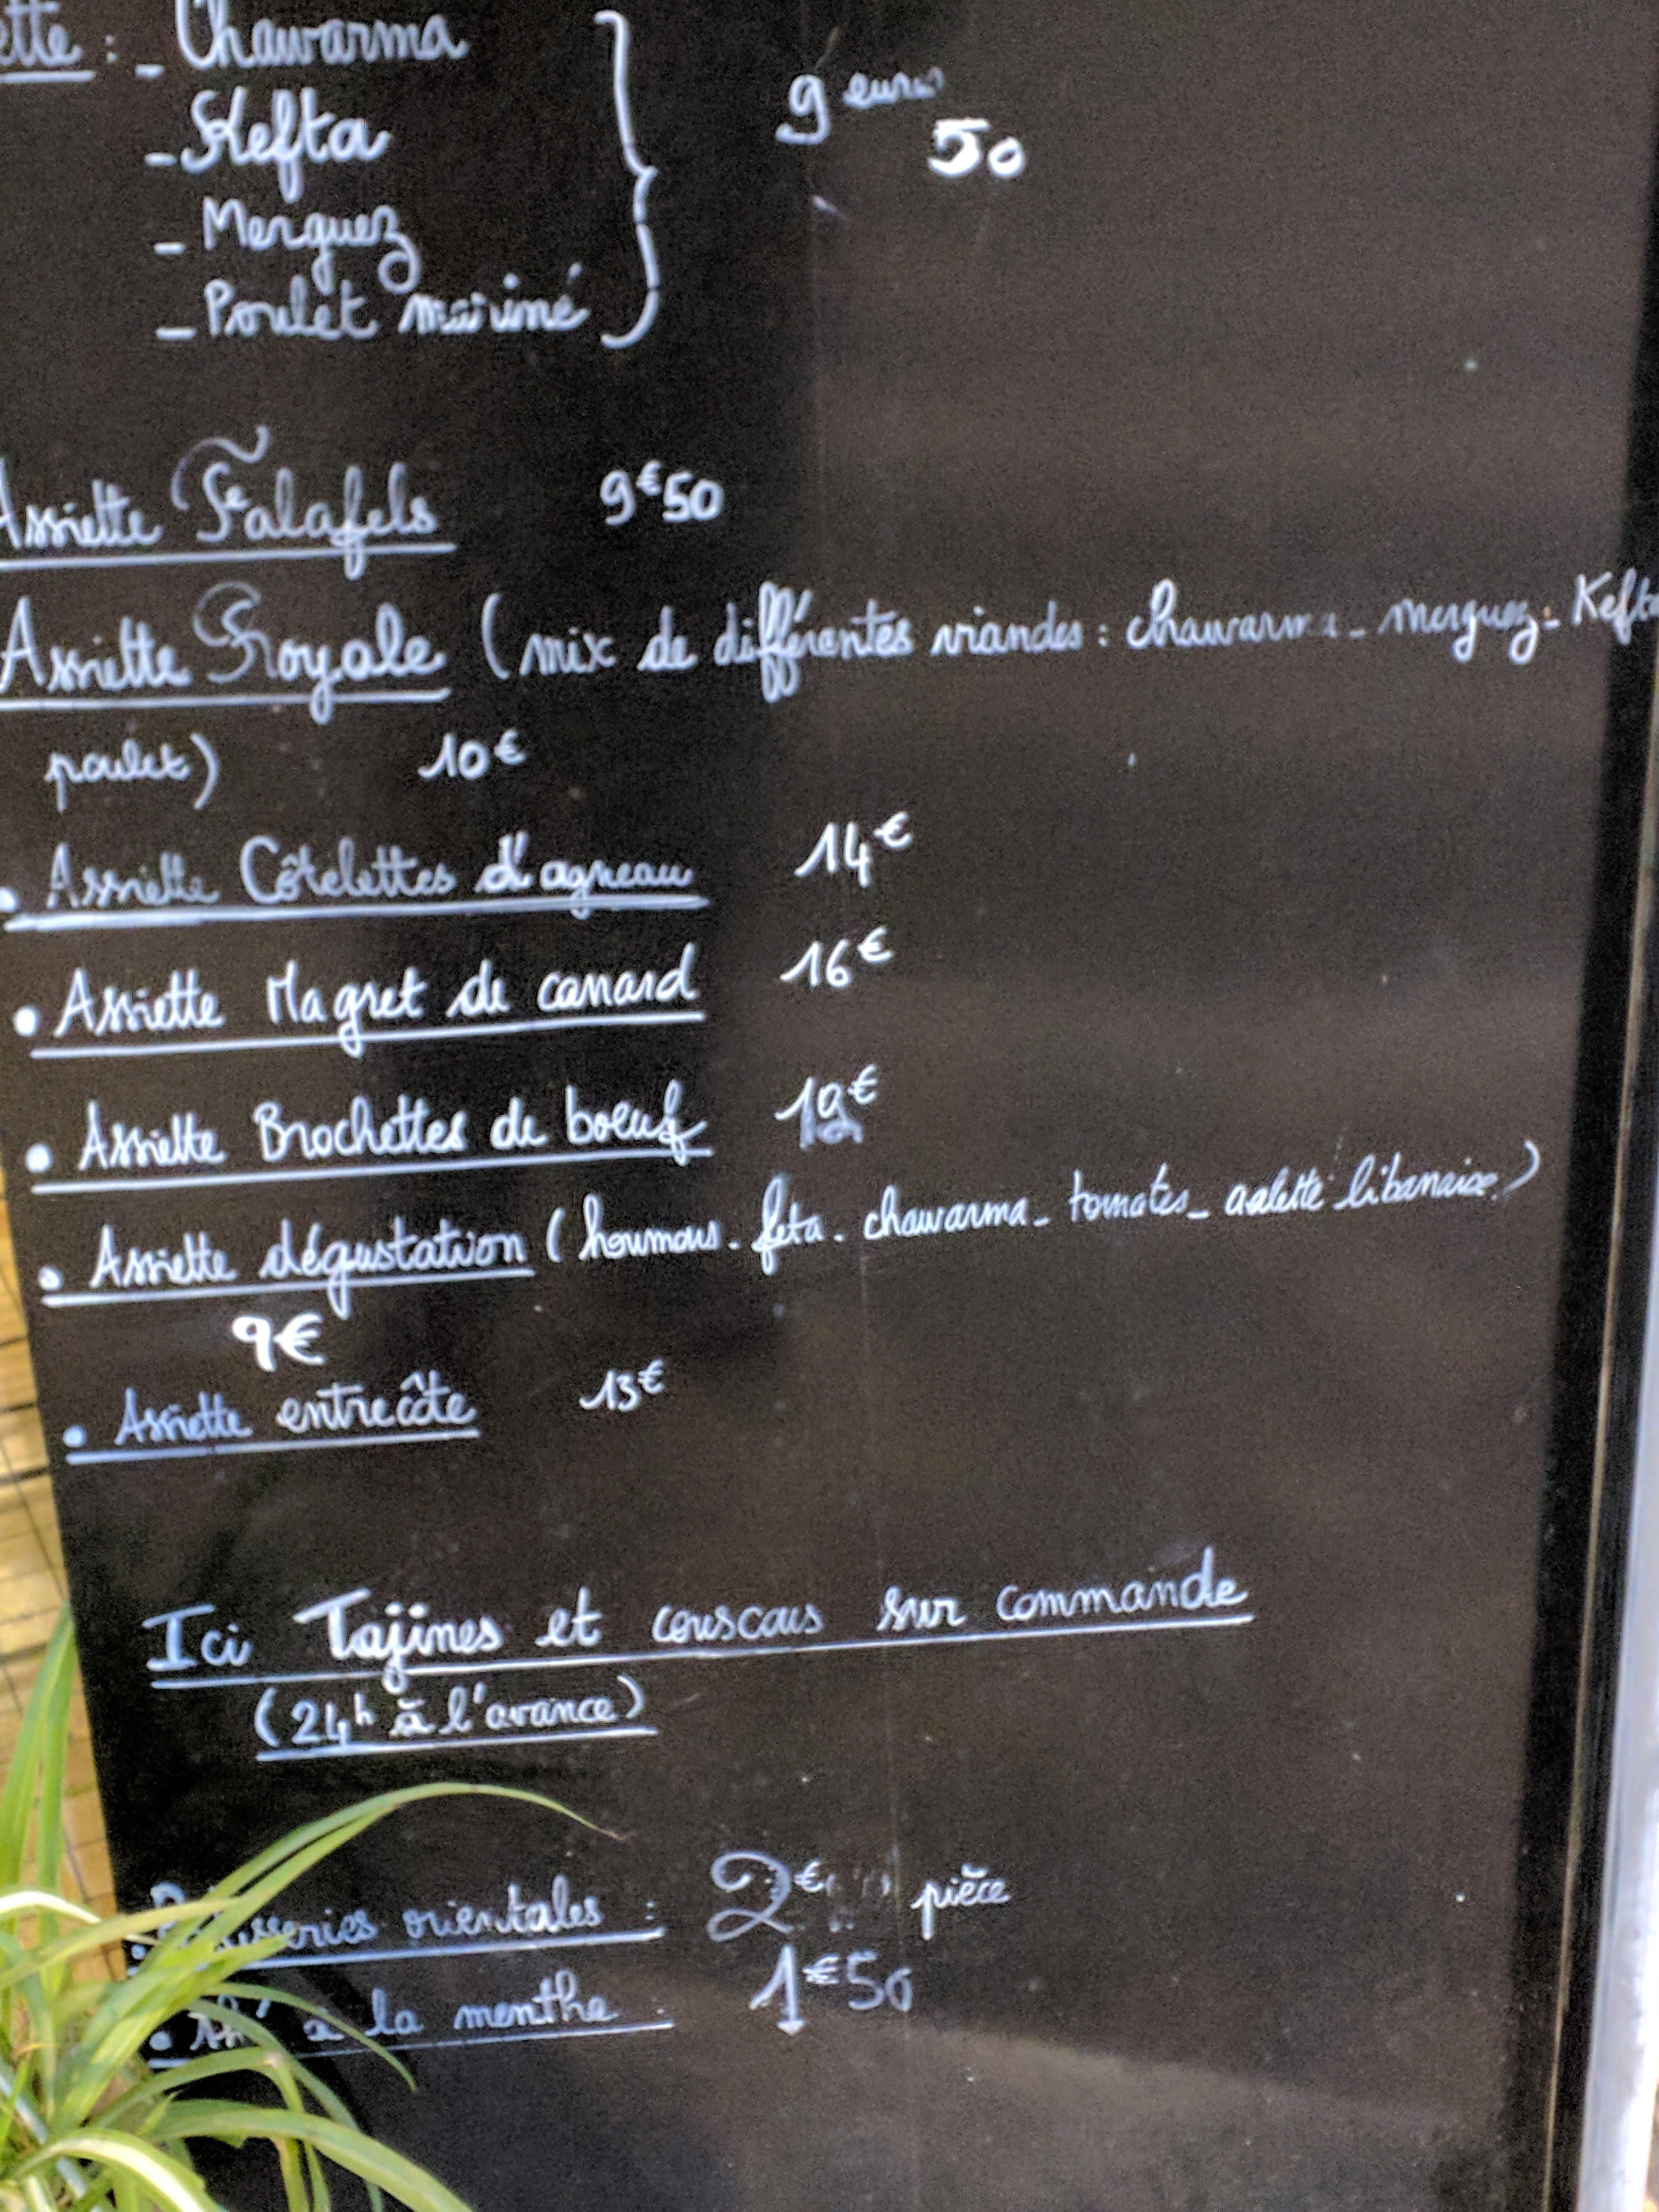 ette : - Chawarma
- Kefta
- Merguez
- Poulet mariné
9 euros
50
Assiette Falafels 9€50
Assiette Royale (mix de différentes viandes : chawarma - merguez - Kefta
poulet) 10€
• Assiette Côtelettes d'agneau 14€
• Assiette Magret de canard 16€
• Assiette Brochettes de boeuf
• Assiette dégustation (houmous - feta - chawarma - tomates - galette libanaise)
9€
• Assiette entrecôte 13€
Ici Tajines et couscous sur commande
(24h à l'avance)
• Pâtisseries orientales : 2€ pièce
• Thé à la menthe : 1€50